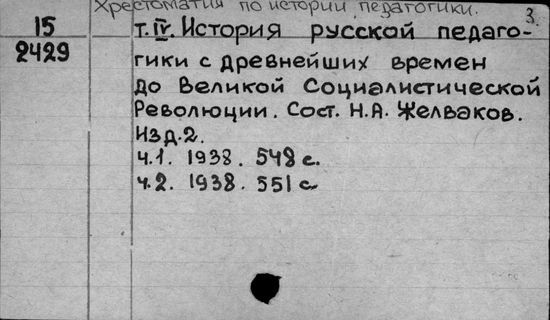 Хрестоматия по истории педагогики.
3.
15
2429
т. IV. История русской педаго-
гики с древнейших времен
до Великой Социалистической
Революции. Сост. Н.А. Желваков.
Изд. 2.
ч.1. 1938. 548 с.
ч.2. 1938. 551 с.